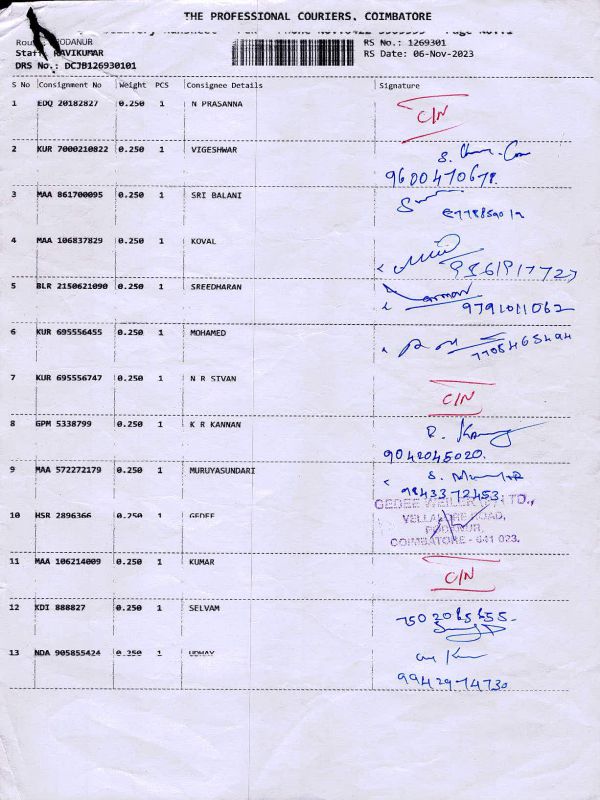 THE PROFESSIONAL COURIERS, COIMBATORE
PODANUR RS No.: 1269301
RAVIKUMAR RS Date: 06-Nov-2023
DRS No.: DCJB126930101
S No Consignment No Weight PCS Consignee Details Signature
1 EDQ 20182827 0.250 1 N PRASANNA C/N
2 KUR 7000210822 0.250 1 VIGESHWAR
9600470678.
3 MAA 861700095 0.250 1 SRI BALANI
4 MAA 106837829 0.250 1 KOVAL
5 BLR 2150621090 0.250 1 SREEDHARAN
9791011062
6 KUR 695556455 0.250 1 MOHAMED
7 KUR 695556747 0.250 1 N R SIVAN C/N
8 GPM 5338799 0.250 1 K R KANNAN
9042045020.
9 MAA 572272179 0.250 1 MURUYASUNDARI
9843372453
10 HSR 2896366 0.250 1 GEDEE
GEDEE LTD.,
VELLALORE ROAD,
PODANUR,
COIMBATORE - 641 023.
11 MAA 106214009 0.250 1 KUMAR C/N
12 KDI 888827 0.250 1 SELVAM
13 NDA 905855424 0.250 1 UDHAY
9942974730